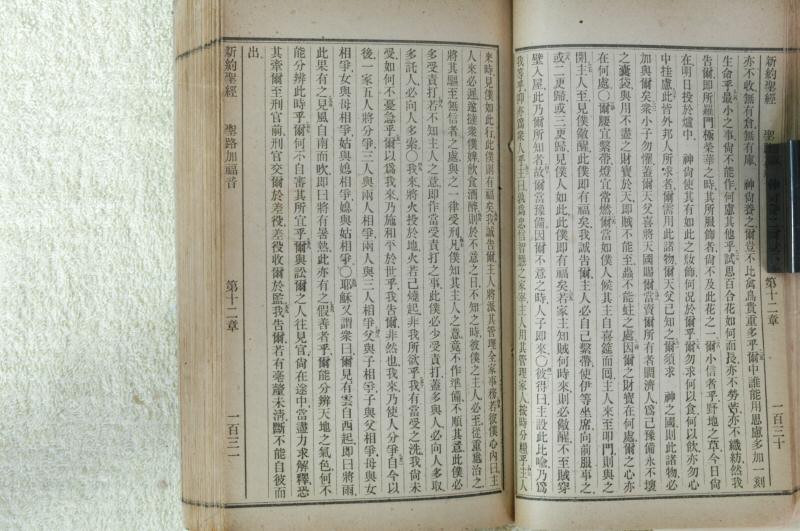 新約聖經 聖路加福音 第十二章 一百三十
亦不收無有倉無有庫 神尚養之爾豈不比禽鳥貴重多乎爾中誰能用思慮多加一刻
生命乎最小之事尚不能作何慮其他乎試思百合花如何而長亦不勞苦亦不織紡然我
告爾即所羅門極榮華之時其所服飾者尚不及此花之一爾小信者乎野地之草今日尚
在明日投於爐中 神尚使其有如此之妝飾何况於爾乎爾勿求何以食何以飲亦勿心
中挂慮此皆外邦人所求者爾需用此諸物爾天父已知之爾須求 神之國則此諸物必
加與爾矣衆小子勿懼蓋爾天父喜將天國賜爾當賣爾所有者賙濟人爲己豫備永不壞
之囊袋與用不盡之財寶於天即賊不能至蟲不能蛀之處因爾之財寶在何處爾之心亦
在何處〇爾腰宜繫帶燈宜常燃爾當如僕人候其主自喜筵而回主人來至叩門則與之
開主人至見僕儆醒此僕即有福矣我誠告爾主人必自己繫帶使伊等坐席向前服事之
或二更歸或三更歸見僕人如此此僕即有福矣若家主知賊何時來則必儆醒不至賊穿
壁人屋此乃爾所知者故爾當豫備因爾不意之時人子即來〇彼得曰主設此比喻乃爲
我等乎抑亦爲衆人乎主曰孰爲忠信智慧之家宰主人用其管理家人按時分糧乎主人
來時見僕如此行此僕則有福矣我誠告爾主人將派其管理全家事務若彼僕心內曰主
人來必遲遂撻衆僕婢飲食酒醉則於不意之日不知之時彼僕之主人必至從重處治之
將其驅至無信者之處與之一律受刑凡僕知其主人之意竟不作準備不順其意此僕必
多受責打若不知主人之意即作當受責打之事此僕必少受責打蓋多與人必向人多取
多託人必向人多索〇我來將火投於地火若已燒起非我所欲乎我有當受之洗我尚未
受如何不憂急乎爾以爲我來乃施和平於世乎我告爾非然也我來乃使人分爭自今以
後一家五人將分爭三人與兩人相爭兩人與三人相爭父與子相爭子與父相爭母與女
相爭女與母相爭姑與媳相爭媳與姑相爭〇耶穌又謂衆曰爾見有雲自西起即曰將雨
此果有之見風自南而吹即曰將有暑熱此亦有之假善者乎爾能分辨天地之氣色何不
能分辨此時乎爾何不自審其所宜乎爾與訟爾之人往見官尚在途中當盡力求解釋恐
其牽爾至刑官前刑官交爾於差役差役收爾於監我告爾若有毫釐未清斷不能自彼而
出
新約聖經 聖路加福音 第十二章 一百三一